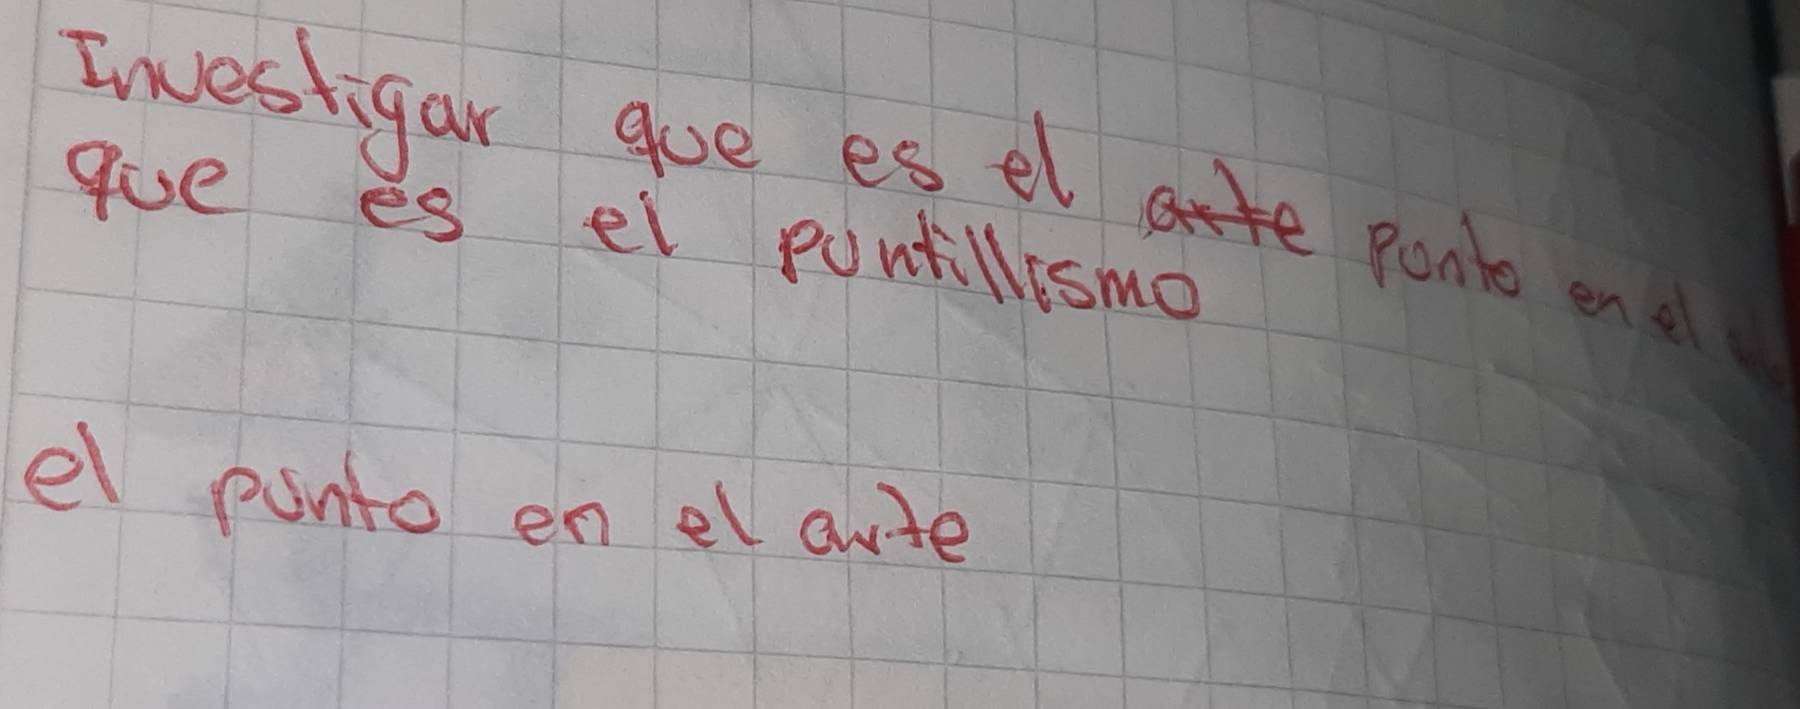 Investigar que es el arte punto en el
que es el puntillismo
el punto en el arte